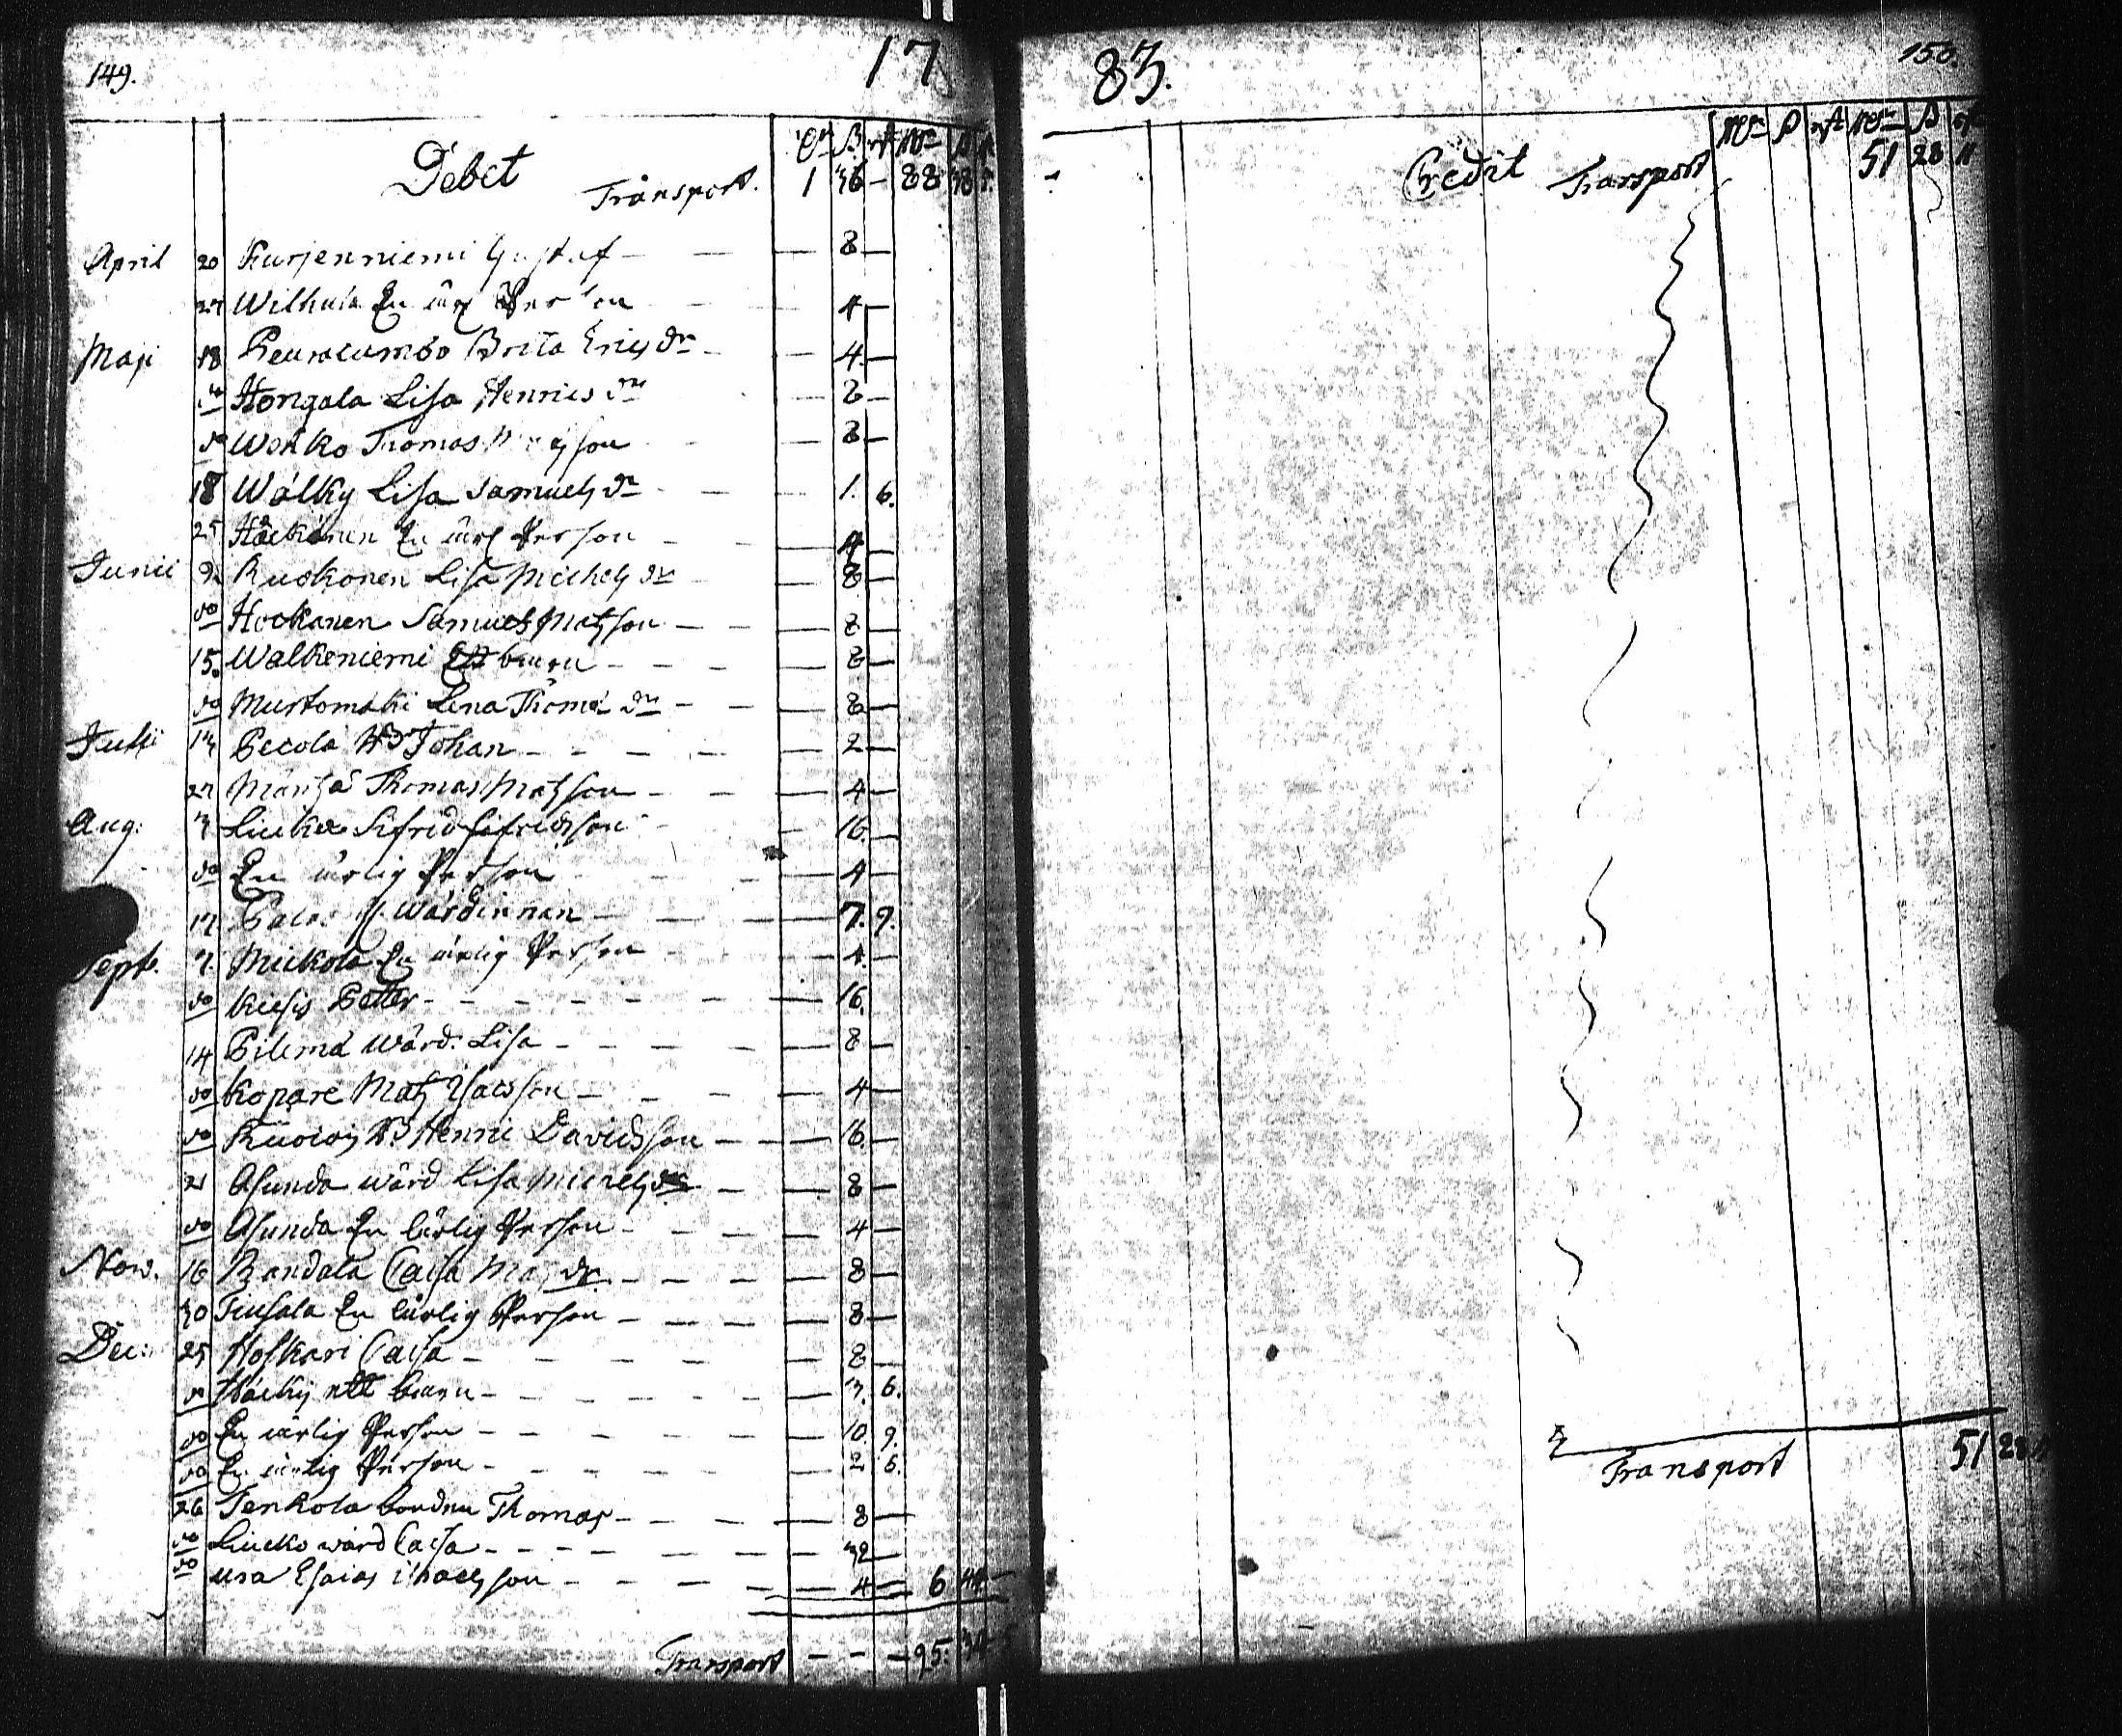 149.
17
Debet
Transport. 1 36 - 88 38 5.
April 20 Kurjenniemi Gustaf - - 8 -
27 Wilhula En ärl Person - - 4 -
Maji 18 Peuracumbo Brita Erics dr - - 4 -
do Hongala Lisa Henrics dr - 8 -
do Wonko Thomas son - 8 -
18 Wälky Lisa Samuels dr - - 1. 6.
25 Häckänen En ärl Person - - 4 -
Junii 9 Ruokonen Lisa Michels dr - 8 -
do Hockanen Samuel Matsson - - 8 -
15. Walkeniemi Ett barn - - - 8 -
do Mustomäki Lena Thoma dr - - 8 -
Julii 13 Pecola Johan - - - - 2 -
27 Mäntzä Thomas Matsson - - 4 -
Aug: 3 Lucko Sifrid Sifridsson - 16. -
do En ärlig Person - 4 -
17 Wärdinnan - - - 7. 9.
Sept. 7. Mickola En ärlig Person - - 4. -
do Kiesis Petter - - - - - - 16. -
14 Pilemä Wärd: Lisa - - - - 8 -
do Kopare Mats Isacsson - - - 4 -
do Henric Davidsson - - 16. -
21 Asunda wärd Lisa Michels dr - 8 -
do Asunda En ärlig Person - - - 4 -
Nov. 16 Bandala Caisa Mats dr - - - 8 -
30 Tuusala En ärlig Person - - - 8 -
Dec: 25 Hoskari Caisa - - - - 8 -
do Häcky ett barn - - - - - 3. 6.
do En ärlig Person - - - - - 10. 9.
do En ärlig Person - - - - - 2 6.
26 Tenkola bonden Thomas - - - 8 -
do Lucko wärd Caisa - - - - - 32 -
do Esaias - - - - 4 - 6 44 -
Transport - - - 95. 34
83.
150.
Credit Transport 51 28 11
Transport 51 28 11